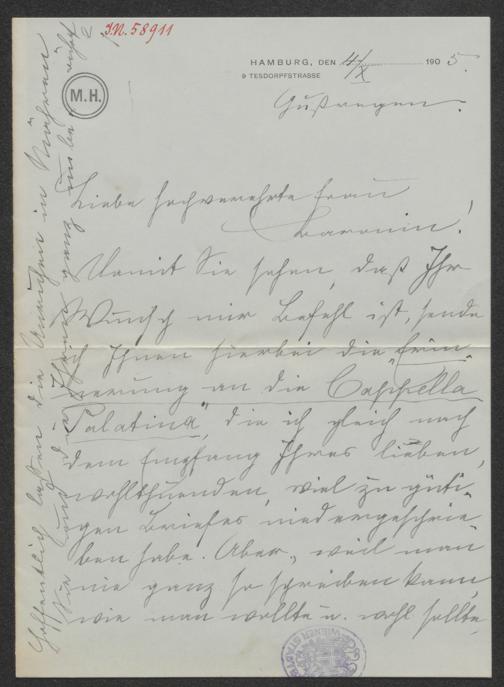 J.N. 58911
M.H.
HAMBURG, DEN 4/X 1905.
9 TESDORPFSTRASSE
Gußregen.
Liebe hochverehrte Frau
Baronin!
Damit Sie sehen, daß Ihr
Wunsch mir Befehl ist, sende
ich Ihnen hierbei die „Erin-
nerung an die Cappella
Palatina“, die ich gleich nach
dem Empfang Ihres lieben,
wohlthuenden, viel zu güti-
gen Briefes niedergeschrie-
ben habe. Aber, weil man
nie ganz so schreiben kann,
wie man wollte u. wohl sollte,
Hoffentlich lassen die Unruhen in Mähren
Sie und die Ihrigen ganz unberührt